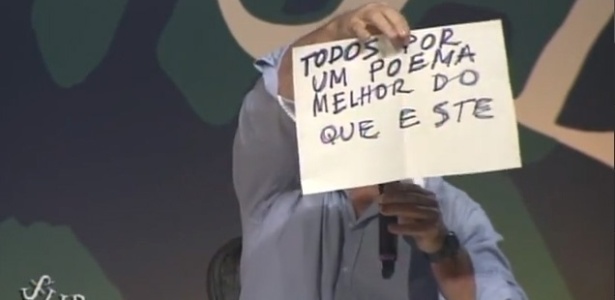 TODOS POR
UM POEMA
MELHOR DO
QUE E STE